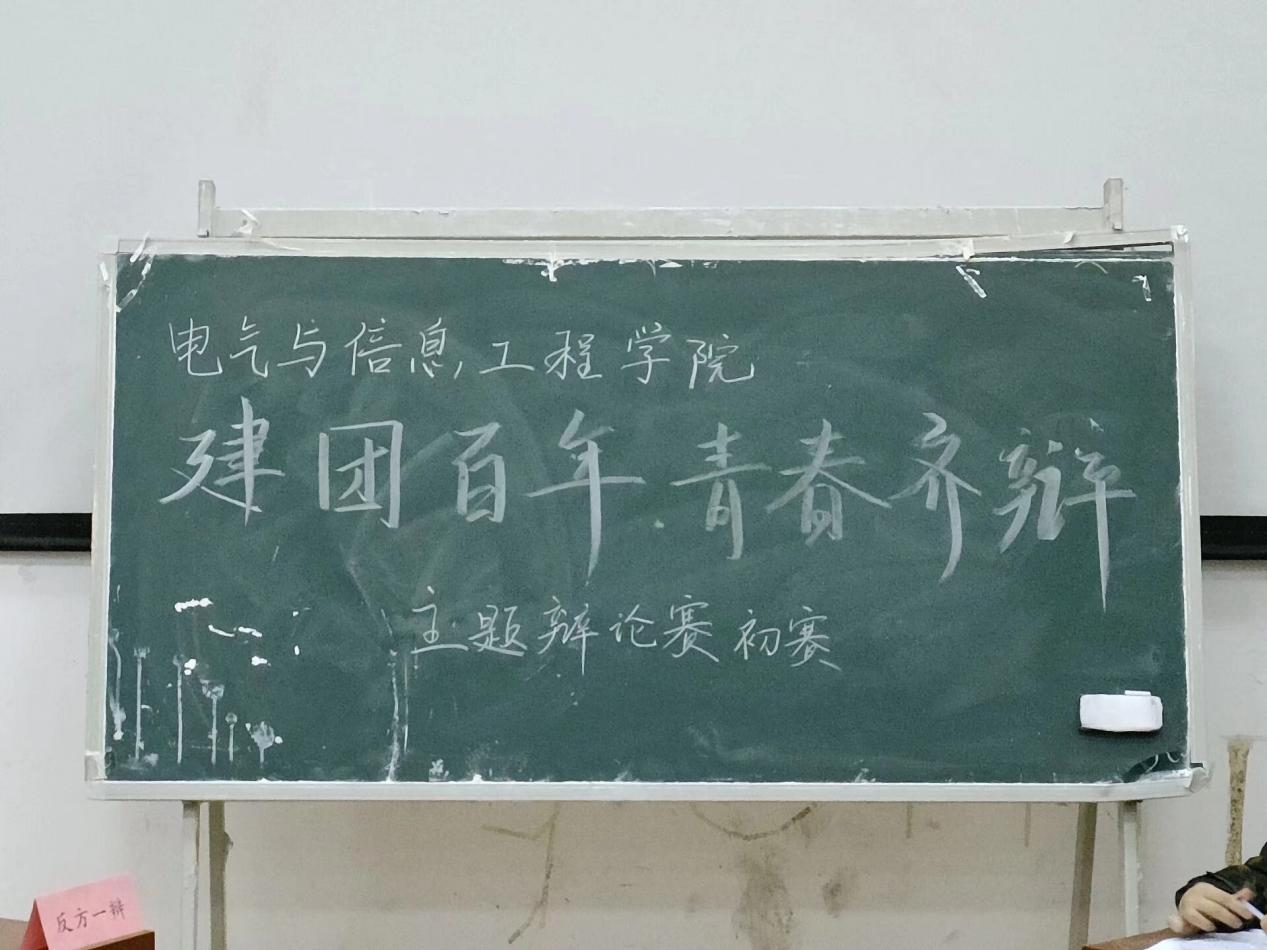 电气与信息工程学院
建团百年 青春齐辩
主题辩论赛初赛
反方一辩